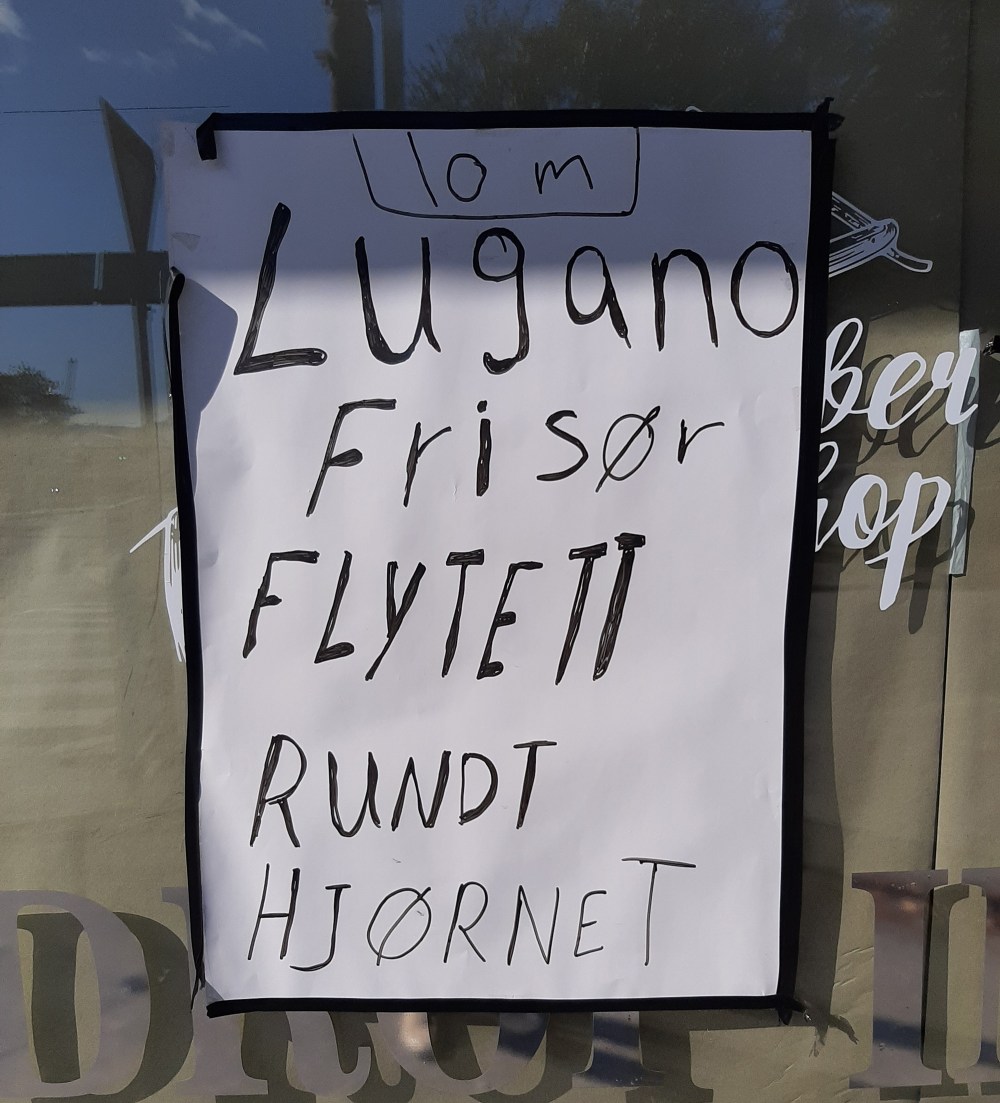 10 m
Lugano
Frisør
FLYTETT
RUNDT
HJØRNET
DROP IN